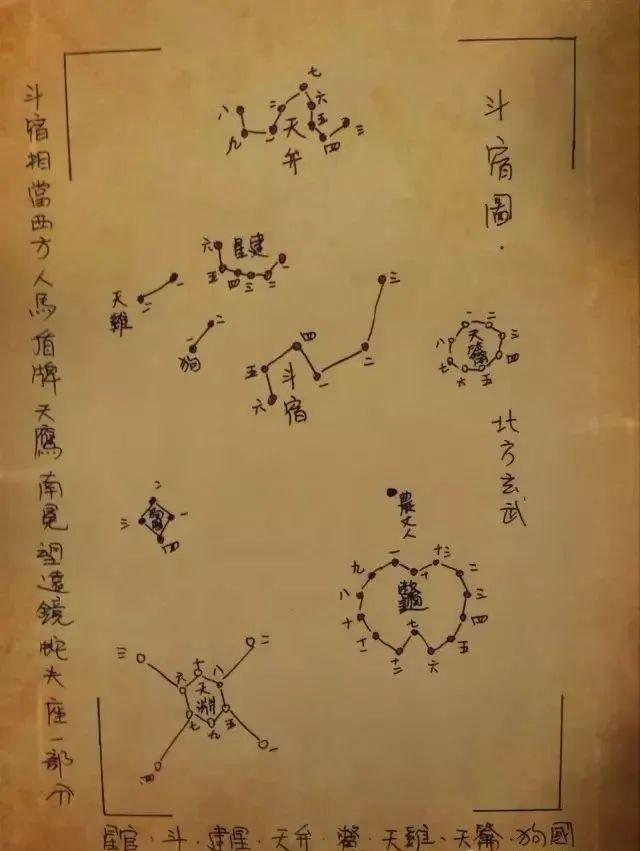 斗宿圖.
北方玄武
斗宿相當西方人馬盾牌天鷹南冕望遠鏡蛇夫座一部分
七
八 二 六
九 一 天 五 四 三
弁
六 星建 一
五 四 三 二
天雞 二 一
狗 一 二
三
四 二
五 一
六 斗宿
一 二
八 三
天籥
七 四
六 五
二
三 一
四
農丈人
一 十三
九 十 二
八 鼈 三
十 四
七
十一 五
十二 六
二
三
十
六 八
天淵
七 五
九
四 一
星官·斗·建星·天弁·鼈·天雞·天籥·狗國